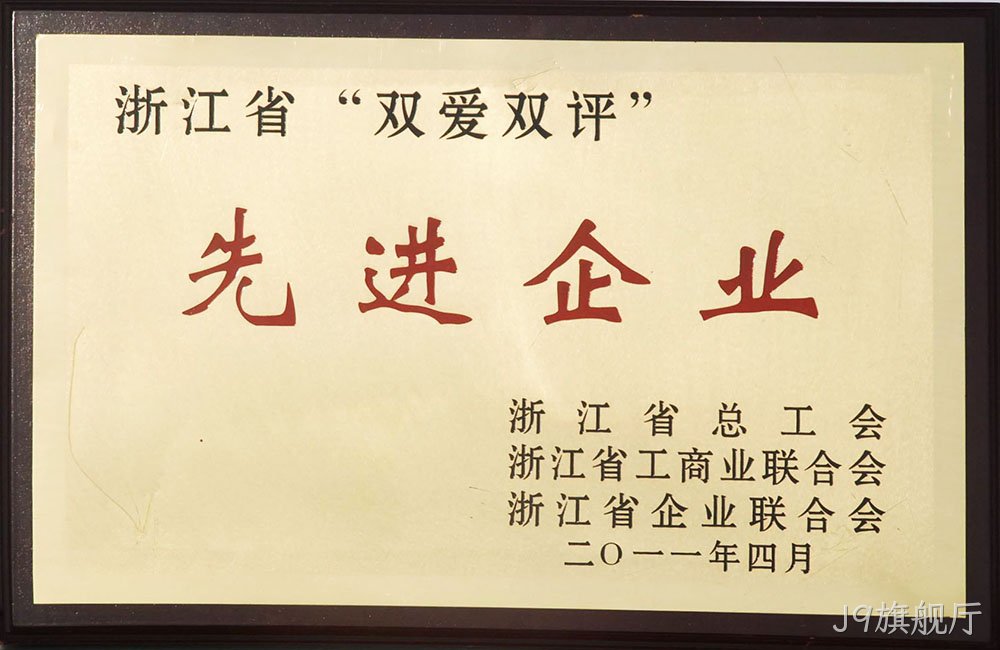 浙江省“双爱双评”
先进企业
浙江省总工会
浙江省工商业联合会
浙江省企业联合会
二〇一一年四月
J9旗舰厅